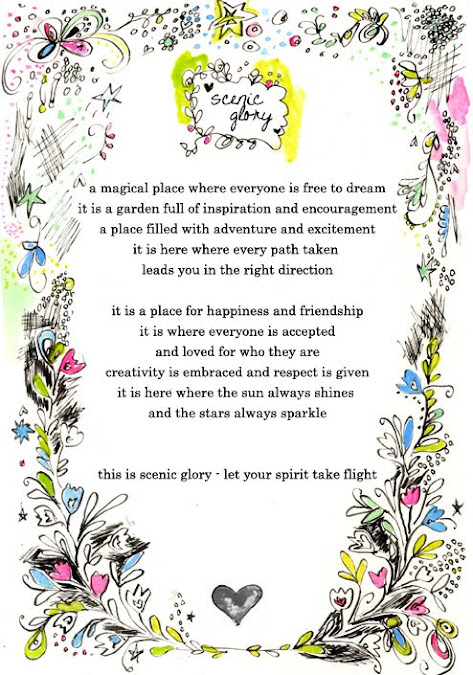 scenic
glory
a magical place where everyone is free to dream
it is a garden full of inspiration and encouragement
a place filled with adventure and excitement
it is here where every path taken
leads you in the right direction
it is a place for happiness and friendship
it is where everyone is accepted
and loved for who they are
creativity is embraced and respect is given
it is here where the sun always shines
and the stars always sparkle
this is scenic glory - let your spirit take flight